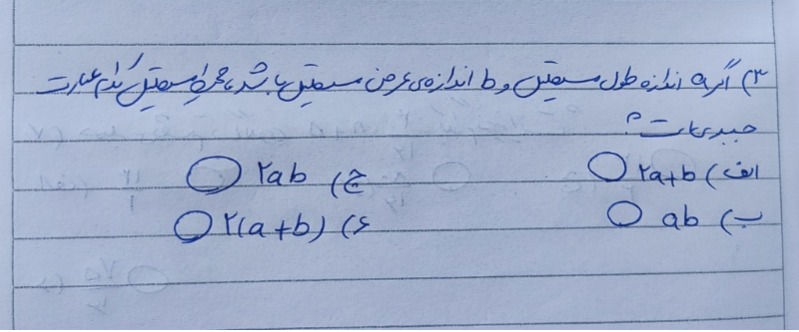 ۳) اگر a اندازه طول مستطیل و b اندازه‌ی عرض مستطیل باشد، محیط مستطیل کدام عبارت
جبری است؟
الف) ۲a+b ج) ۲ab
ب) ab د) ۲(a+b)